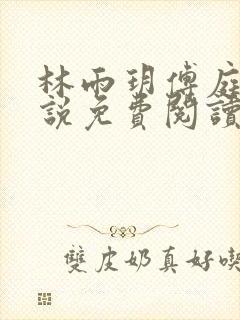 林雨玥傅庭
說免費閱讀
雙皮奶真好喫